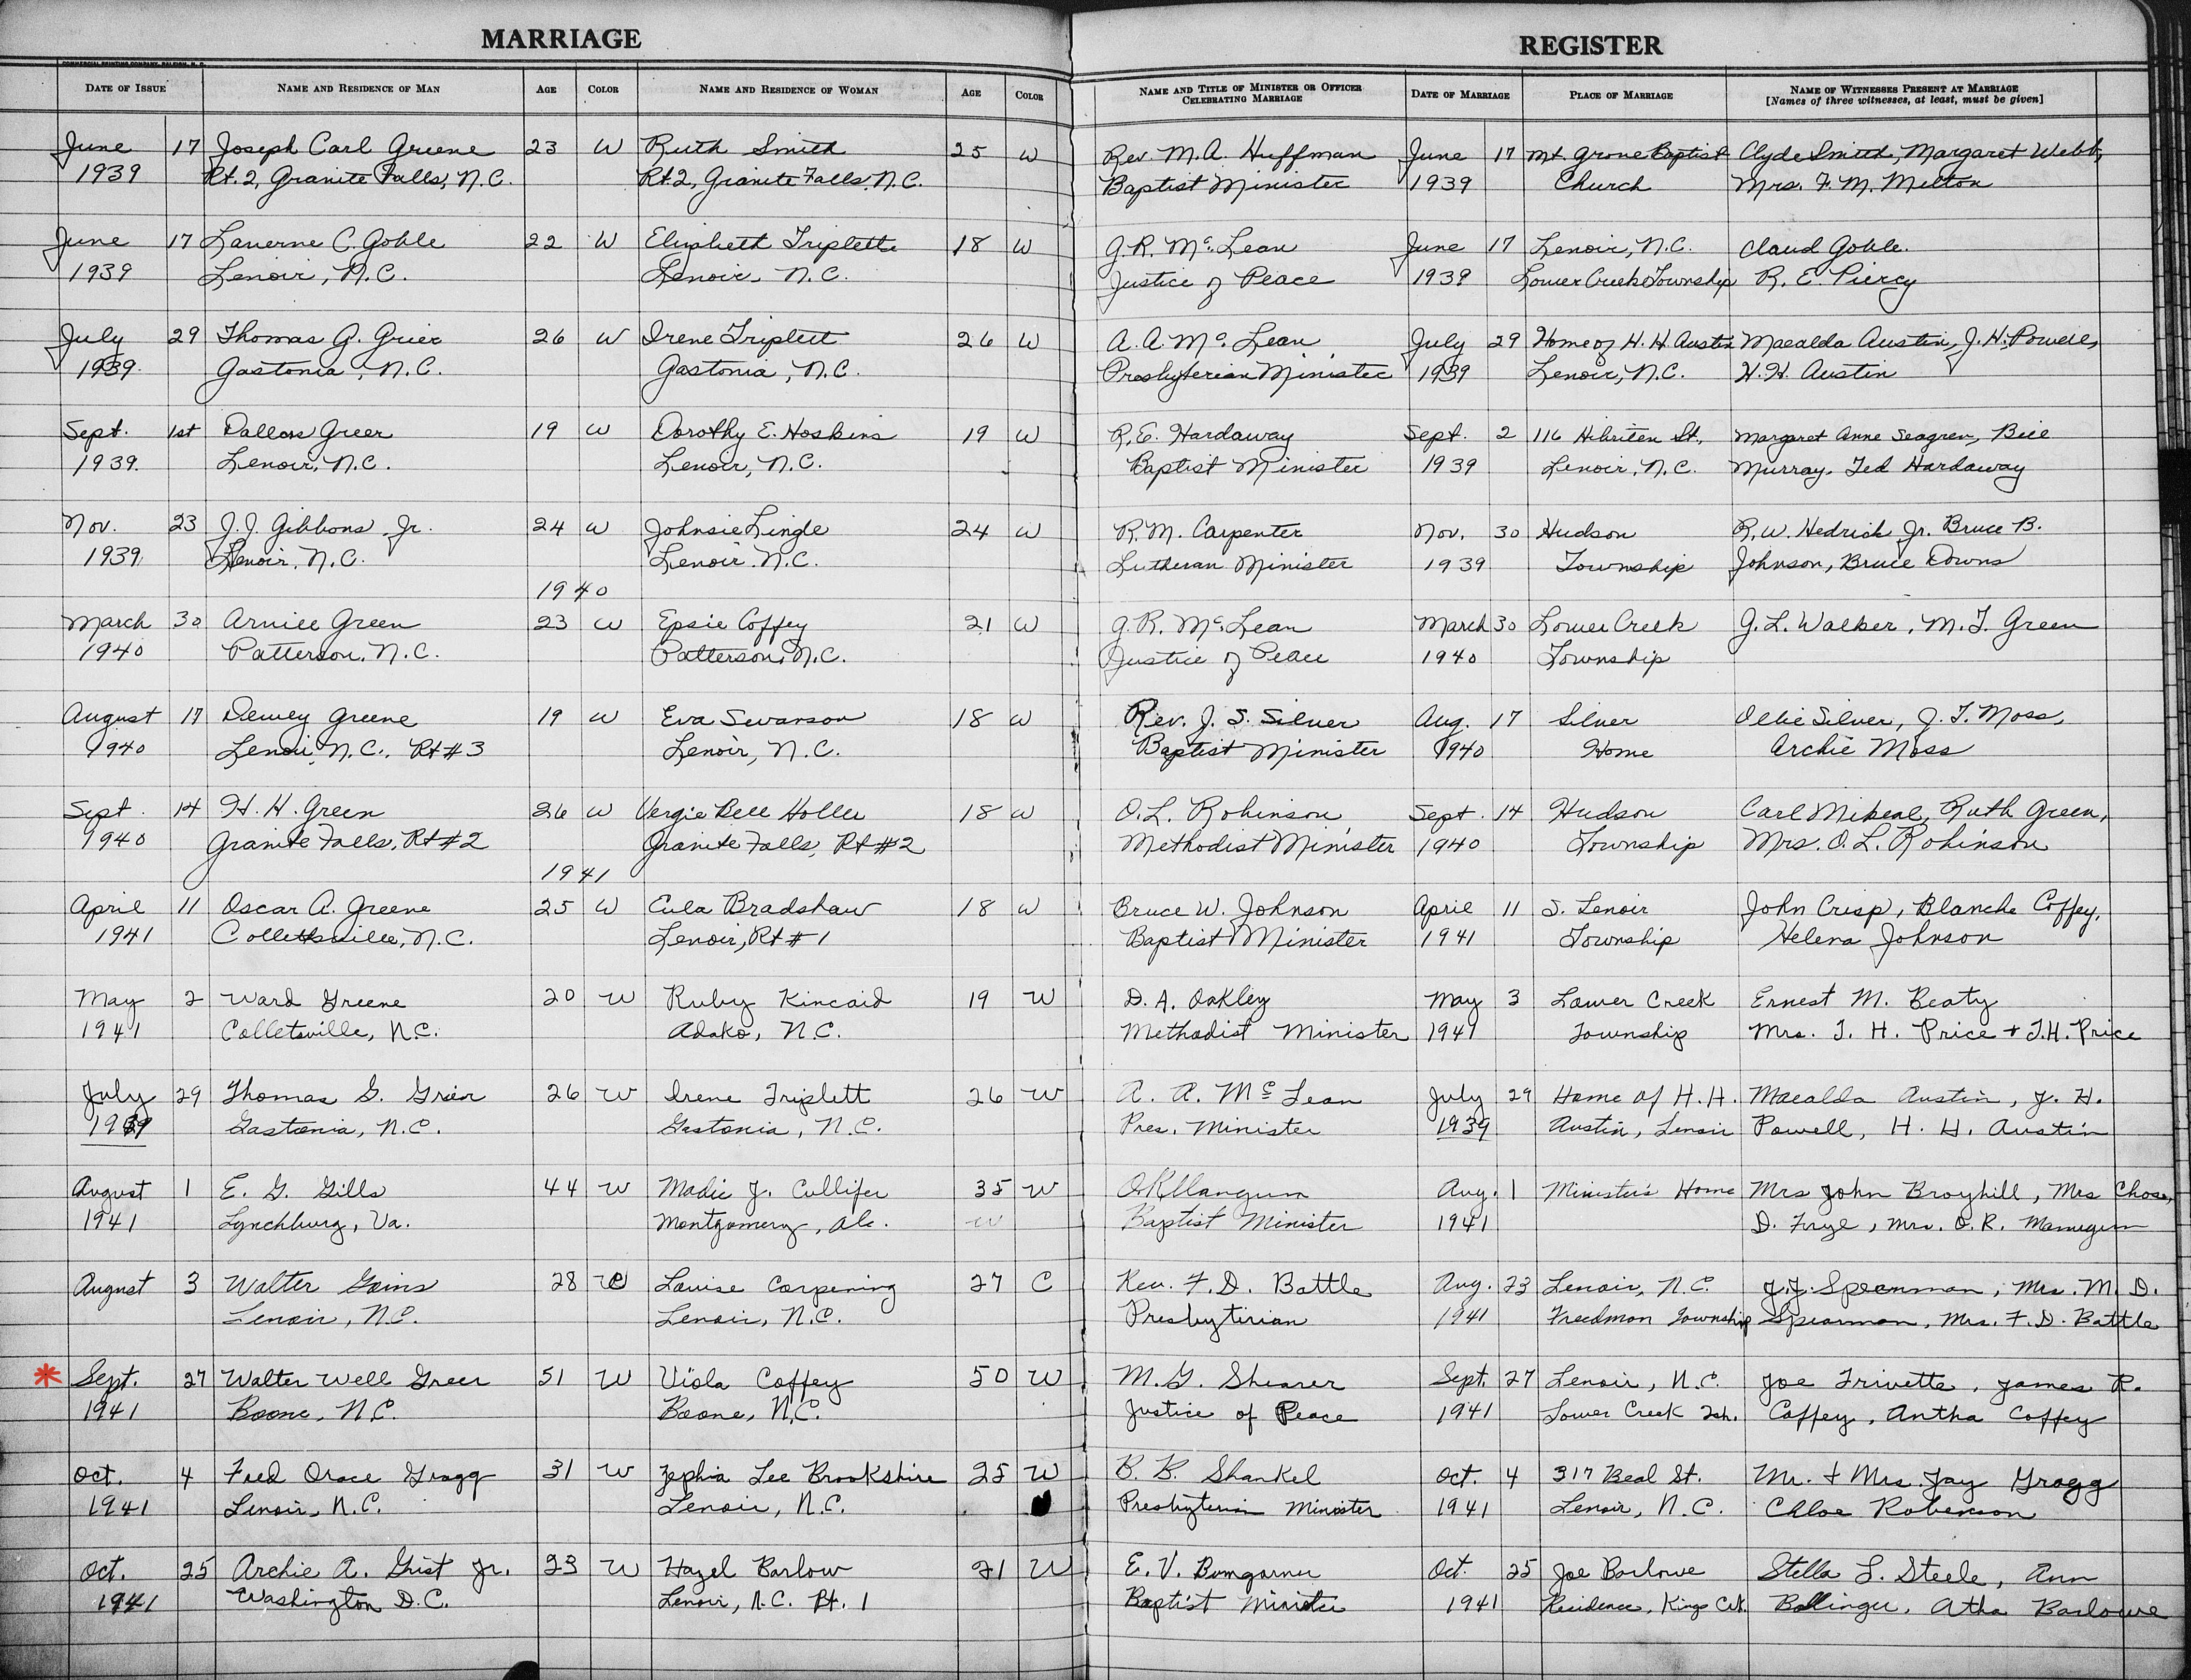 MARRIAGE REGISTER
COMMERCIAL PRINTING COMPANY, RALEIGH, N. C.
DATE OF ISSUE NAME AND RESIDENCE OF MAN AGE COLOR NAME AND RESIDENCE OF WOMAN AGE COLOR NAME AND TITLE OF MINISTER OR OFFICER CELEBRATING MARRIAGE DATE OF MARRIAGE PLACE OF MARRIAGE NAME OF WITNESSES PRESENT AT MARRIAGE [Names of three witnesses, at least, must be given]
June 17 Joseph Carl Greene 23 W Ruth Smith 25 W Rev. M.A. Huffman June 17 Mt. Grove Baptist Clyde Smith, Margaret Webb,
1939 Rt. 2, Granite Falls, N.C. Rt. 2, Granite Falls, N.C. Baptist Minister 1939 Church Mrs. F. M. Melton
June 17 Laverne C. Goble 22 W Elizabeth Triplette 18 W G.R. McLean June 17 Lenoir, N.C. Claud Goble.
1939 Lenoir, N.C. Lenoir, N.C. Justice of Peace 1939 Lower Creek Township R. E. Piercy
July 29 Thomas G. Grier 26 W Irene Triplett 26 W A. A. McLean July 29 Home of H. H. Austin Macalda Austin, J. H. Powell,
1939 Gastonia, N.C. Gastonia, N.C. Presbyterian Minister 1939 Lenoir, N.C. H. H. Austin
Sept. 1st Dallas Greer 19 W Dorothy E. Hoskins 19 W R. E. Hardaway Sept. 2 116 Hibriten St. Margaret Anne Seagren, Bill
1939. Lenoir, N.C. Lenoir, N.C. Baptist Minister 1939 Lenoir, N.C. Murray, Ted Hardaway
Nov. 23 J. J. Gibbons, Jr. 24 W Johnsie Lingle 24 W R. M. Carpenter Nov. 30 Hudson R. W. Hedrick Jr. Bruce B.
1939 Lenoir, N.C. Lenoir, N.C. Lutheran Minister 1939 Township Johnson, Bruce Downs
1940
March 30 Green 23 W Epsie Coffey 21 W G. R. McLean March 30 Lower Creek G. L. Walker, M. T. Green
1940 Patterson, N.C. Patterson, N.C. Justice of Peace 1940 Township
August 17 Dewey Greene 19 W Eva Swanson 18 W Rev. J. S. Silver Aug. 17 Silver Ollie Silver, J. T. Moss,
1940 Lenoir, N.C., Rt #3 Lenoir, N.C. Baptist Minister 1940 Home Archie Moss
Sept. 14 H. H. Green 26 W Vergie Bell Holler 18 W O. L. Robinson, Sept. 14 Hudson Carl Mikeal, Ruth Green,
1940 Granite Falls, Rt #2 Granite Falls, Rt #2 Methodist Minister 1940 Township Mrs. O. L. Robinson
1941
April 11 Oscar A. Greene 25 W Eula Bradshaw 18 W Bruce W. Johnson April 11 S. Lenoir John Crisp, Blanche Coffey,
1941 Collettsville, N.C. Lenoir, Rt #1 Baptist Minister 1941 Township Helena Johnson
May 2 Ward Greene 20 W Ruby Kincaid 19 W D. A. Oakley May 3 Lower Creek Ernest M. Beaty
1941 Colletsville, N.C. Adako, N.C. Methodist Minister 1941 Township Mrs. T. H. Price + T.H. Price
July 29 Thomas G. Grier 26 W Irene Triplett 26 W A. A. McLean July 29 Home of H. H. Macalda Austin, J. H.
1939 Gastonia, N.C. Gastonia, N.C. Pres. Minister 1939 Austin, Lenoir Powell, H. H. Austin
August 1 E. G. Gills 44 W Madie J. Cullifer 35 W O R Mangum Aug. 1 Minister's Home Mrs John Broyhill, Mrs Chas.
1941 Lynchburg, Va. Montgomery, Ala. W Baptist Minister 1941 D. Frye, Mrs. O. R. Mangum
August 3 Walter Gains 28 C Louise Corpening 27 C Rev. F. D. Battle Aug. 23 Lenoir, N.C. J. J. Spearman, Mrs. M. D.
Lenoir, N.C. Lenoir, N.C. Presbyterian 1941 Freedman Township Spearman, Mrs. F. D. Battle
* Sept. 27 Walter Well Greer 51 W Viola Coffey 50 W M. G. Shearer Sept. 27 Lenoir, N.C. Joe Trivette, James R.
1941 Boone, N.C. Boone, N.C. Justice of Peace 1941 Lower Creek Tsh. Coffey, Antha Coffey
Oct. 4 Fred Orace Gragg 31 W Zephia Lee Brookshire 25 W B. B. Shankel Oct. 4 317 Beal St. Mr. + Mrs. Jay Gragg
1941 Lenoir, N.C. Lenoir, N.C. Presbyterian Minister 1941 Lenoir, N.C. Chloe Roberson
Oct. 25 Archie A. Grist Jr. 23 W Hazel Barlow 21 W E. V. Bumgarner Oct. 25 Joe Barlowe Stella L. Steele, Ann
1941 Washington D.C. Lenoir, N.C. Rt. 1 Baptist Minister 1941 Residence, Kings Crk. Bollinger, Atha Barlowe